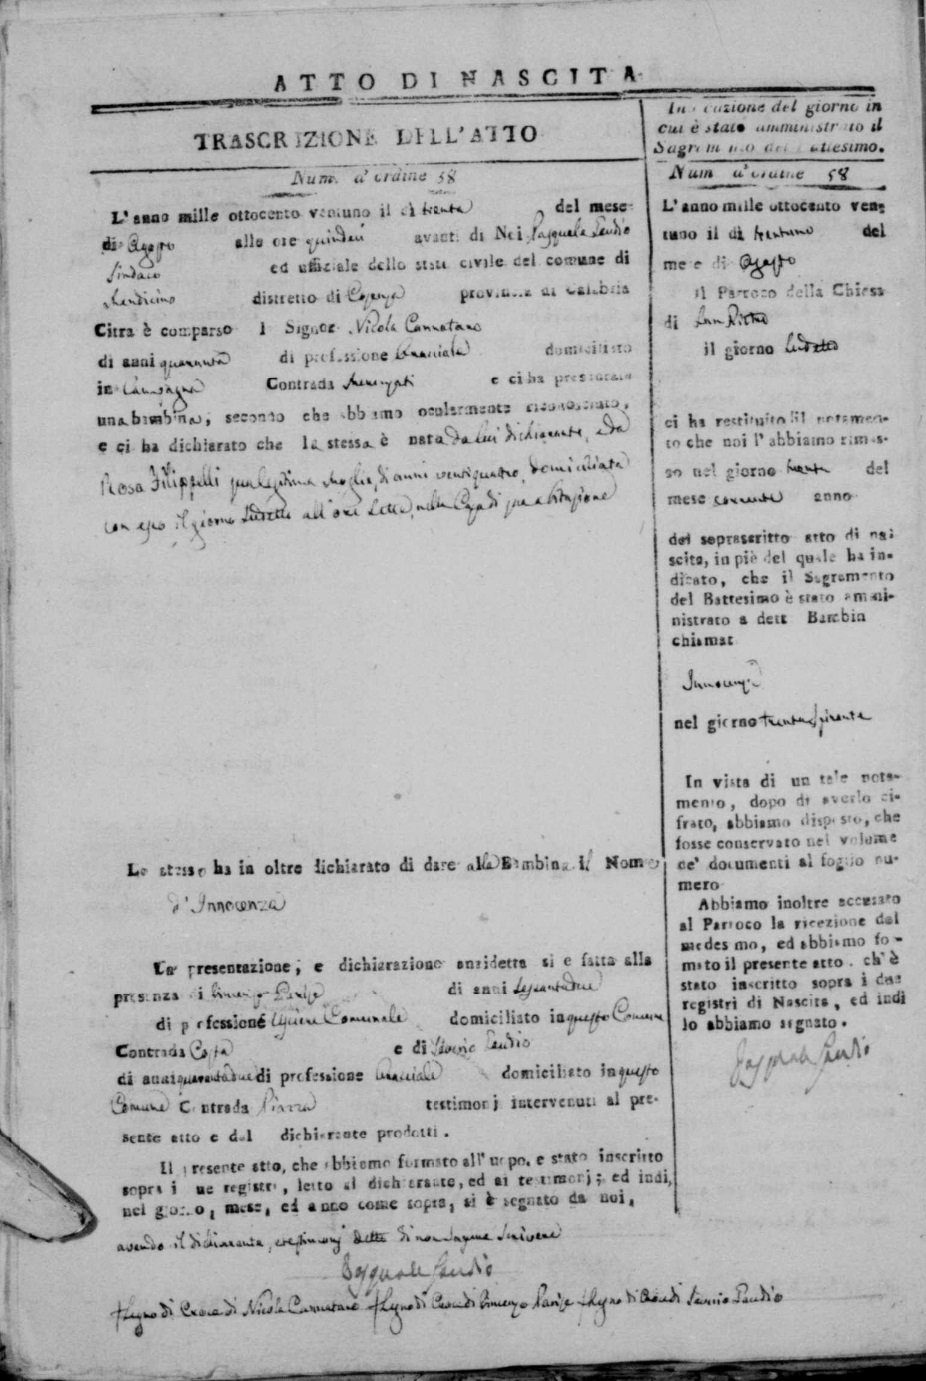 ATTO DI NASCITA
TRASCRIZIONE DELL'ATTO
Num. d'ordine 58
L'anno mille ottocento ventuno il dì trenta del mese
di Agosto alle ore quindeci avanti di Noi Pasquale Gaudio
Sindaco ed uffiziale dello stato civile del comune di
Mendicino distretto di Cosenza provincia di Calabria
Citra è comparso l Signor Nicola Cannatano
di anni quaranta di professione Bracciale domiciliato
in Campagna Contrada e ci ha presentato
una bambina, secondo che abbiamo ocularmente riconosciuto,
e ci ha dichiarato che la stessa è nata da lui dichiarante, e da
Rosa Filippelli sua legitima moglie, di anni ventiquattro, domiciliata
con esso il giorno sudetto all'ore sette, nella Casa di sua abitazione
Lo stesso ha in oltre dichiarato di dare alla Bambina il Nome
d'Innocenza
La presentazione, e dichiarazione anzidetta si è fatta alla
presenza di Vincenzo Parise di anni sessantadue
di professione Usciere Comunale domiciliato in questo Comune
Contrada Costa e di Saverio Gaudio
di anni quarantadue di professione Bracciale domiciliato in questo
Comune Contrada Piazza testimonj intervenuti al pre-
sente atto e dal dichiarante prodotti.
Il presente atto, che abbiamo formato all'uopo, è stato inscritto
sopra i due registri, letto al dichiarante, ed ai testimonj; ed indi,
nel giorno, mese, ed anno come sopra, si è segnato da noi,
avendo il dichiarante, e testimonj detto di non sapere scrivere
Pasquale Gaudio
+ Segno di Croce di Nicola Cannatano + Segno di Croce di Vincenzo Parise + Segno di Croce di Saverio Gaudio
Indicazione del giorno in
cui è stato amministrato il
Sagramento del Battesimo.
Num d'ordine 58
L'anno mille ottocento ven-
tuno il dì trentuno del
mese di Agosto
il Parroco della Chiesa
di San Pietro
il giorno sudetto
ci ha restituito il notamen-
to che noi l'abbiamo rimes-
so nel giorno trenta del
mese corrente anno
del soprascritto atto di na-
scita, in piè del quale ha in-
dicato, che il Sagramento
del Battesimo è stato ammi-
nistrato a dett Bambin
chiamat
Innocenza
nel giorno trenta spirante
In vista di un tale nota-
mento, dopo di averlo ci-
frato, abbiamo disposto, che
fosse conservato nel volume
de' documenti al foglio nu-
mero
Abbiamo inoltre accusato
al Parroco la ricezione del
medesimo, ed abbiamo fo-
mato il presente atto, ch'è
stato inscritto sopra i due
registri di Nascita, ed indi
lo abbiamo segnato.
Pasquale Gaudio